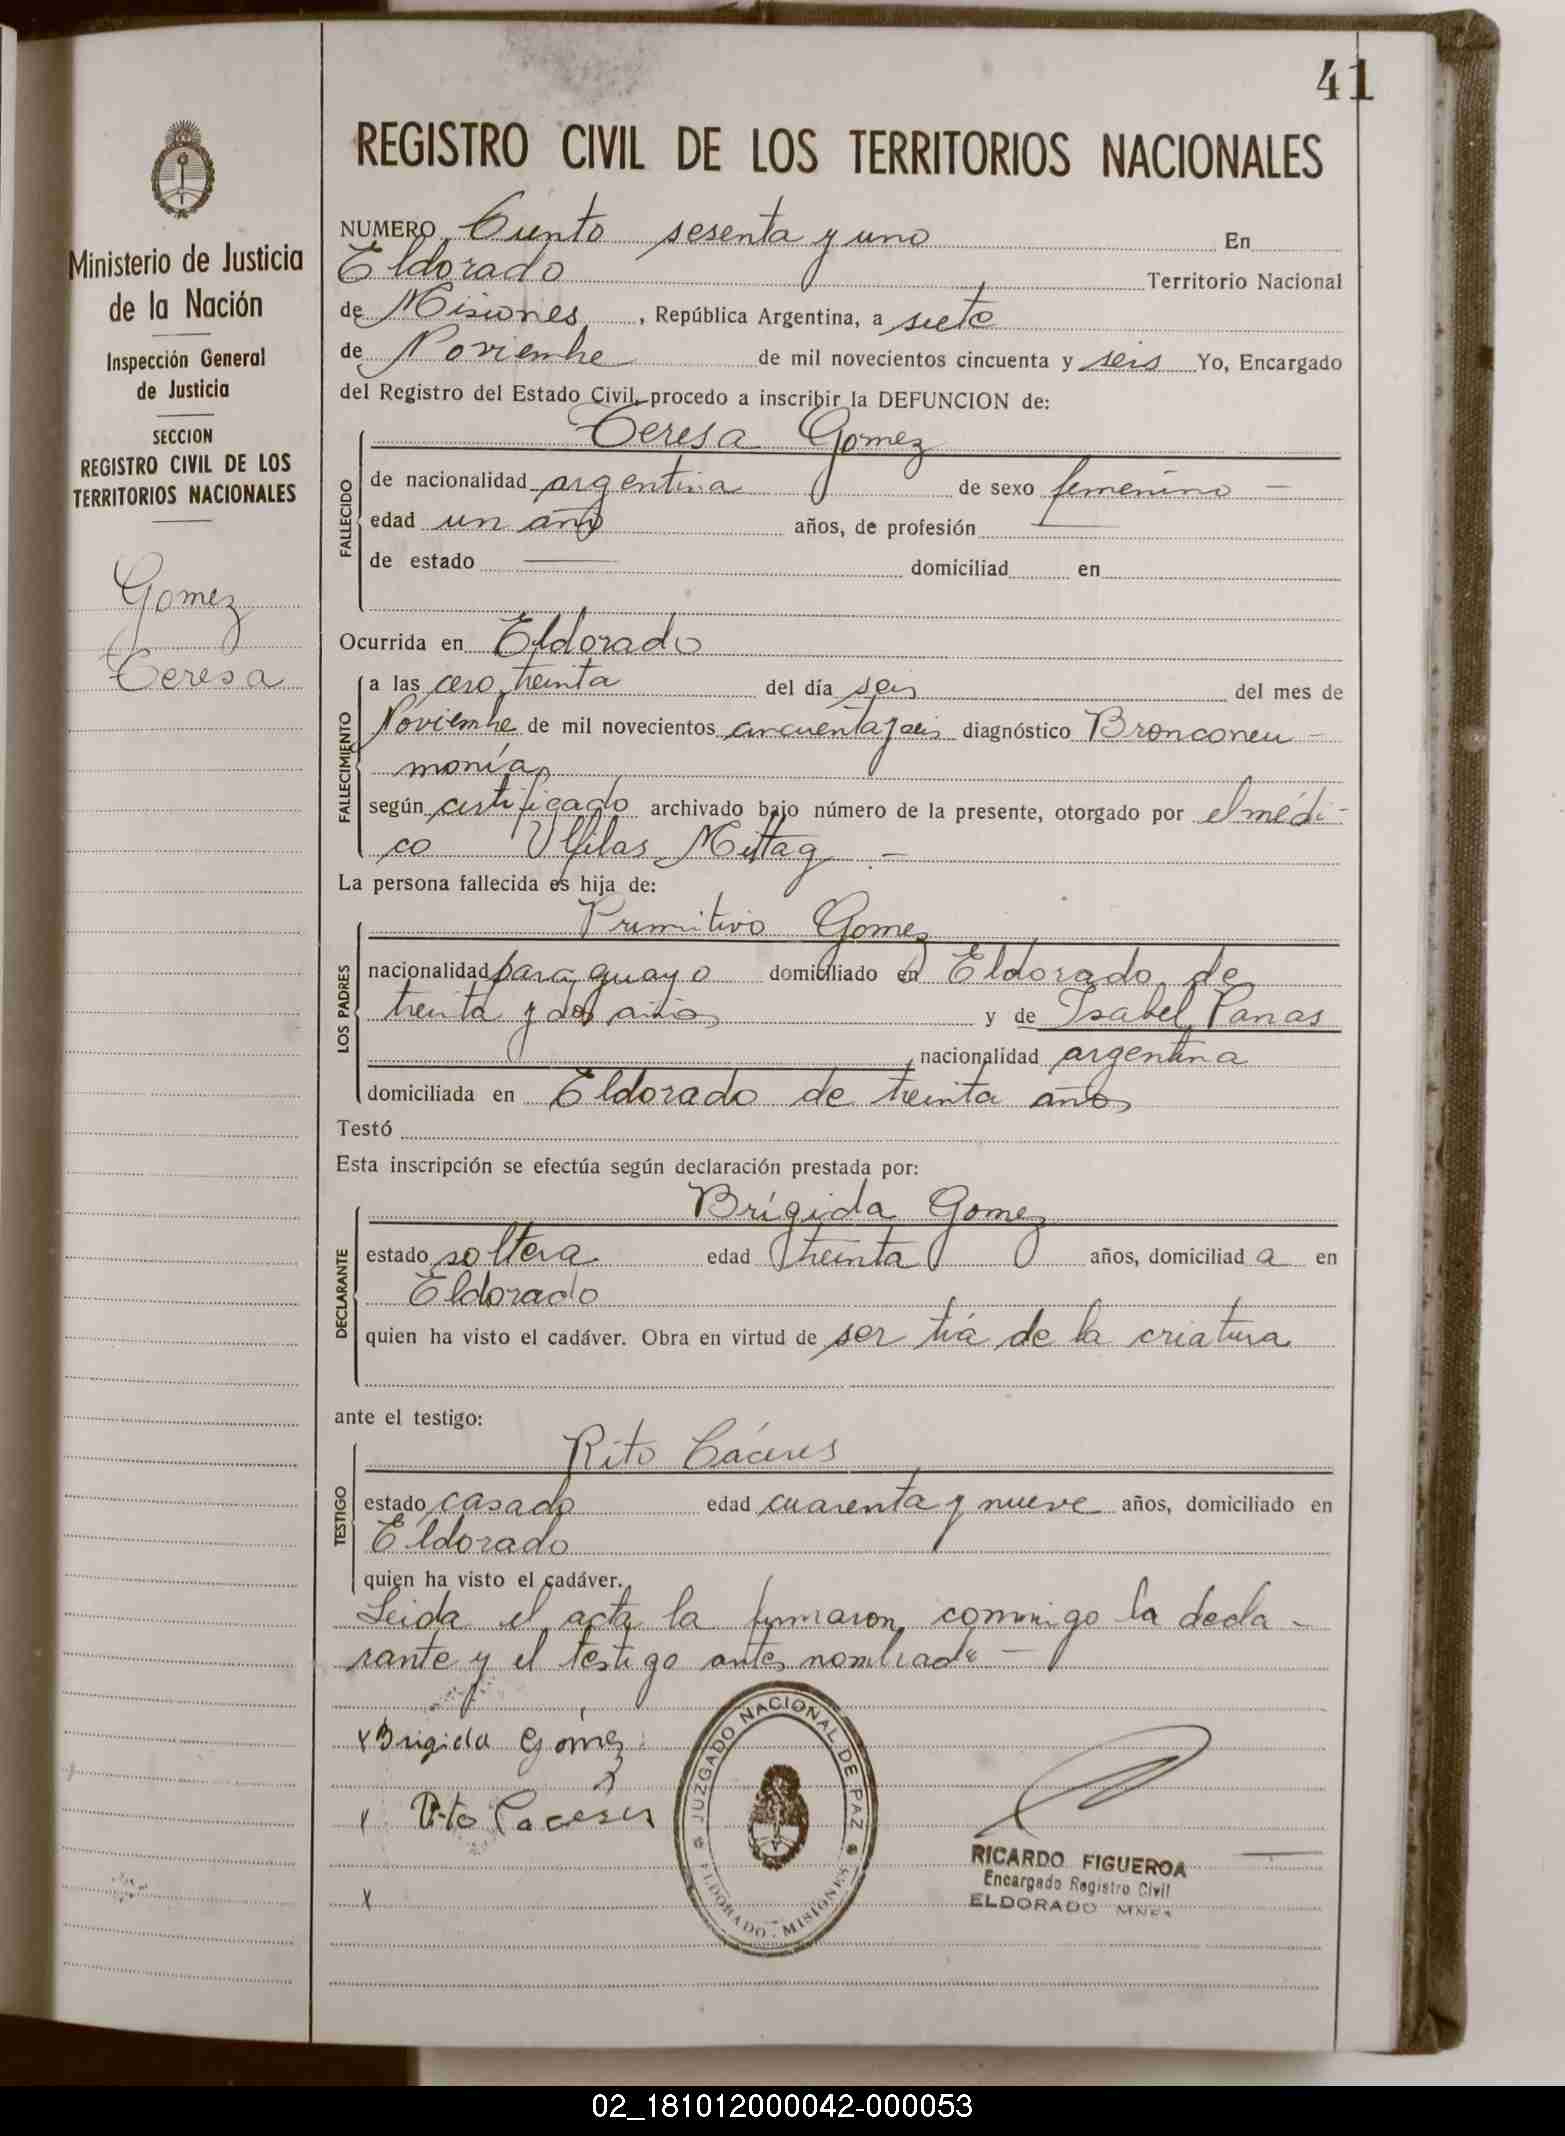 41
REGISTRO CIVIL DE LOS TERRITORIOS NACIONALES
Ministerio de Justicia
de la Nación
Inspección General
de Justicia
SECCION
REGISTRO CIVIL DE LOS
TERRITORIOS NACIONALES
Gomez
Teresa
NUMERO Ciento sesenta y uno En
Eldorado Territorio Nacional
de Misiones, República Argentina, a siete
de Noviembre de mil novecientos cincuenta y seis Yo, Encargado
del Registro del Estado Civil, procedo a inscribir la DEFUNCION de:
FALLECIDO
Teresa Gomez
de nacionalidad argentina de sexo femenino —
edad un año años, de profesión —
de estado — domiciliad en
Ocurrida en Eldorado
FALLECIMIENTO
a las cero treinta del día seis del mes de
Noviembre de mil novecientos cincuenta y seis diagnóstico Bronconeu-
monía
según certificado archivado bajo número de la presente, otorgado por el médi-
co Ulfilas Mittag. —
La persona fallecida es hija de:
LOS PADRES
Primitivo Gomez
nacionalidad paraguayo domiciliado en Eldorado de
treinta y dos años y de Isabel
nacionalidad argentina
domiciliada en Eldorado de treinta años
Testó
Esta inscripción se efectúa según declaración prestada por:
DECLARANTE
Brígida Gomez
estado soltera edad treinta años, domiciliad a en
Eldorado
quien ha visto el cadáver. Obra en virtud de ser tía de la criatura
ante el testigo:
TESTIGO
Rito Cáceres
estado casado edad cuarenta y nueve años, domiciliado en
Eldorado
quien ha visto el cadáver.
Leida el acta la firmaron conmigo la decla-
rante y el testigo antes nombrado —
x Brigida Gómez
x Rito Caceres
x
JUZGADO NACIONAL DE PAZ
ELDORADO - MISIONES
RICARDO FIGUEROA
Encargado Registro Civil
ELDORADO MNES
02_181012000042-000053